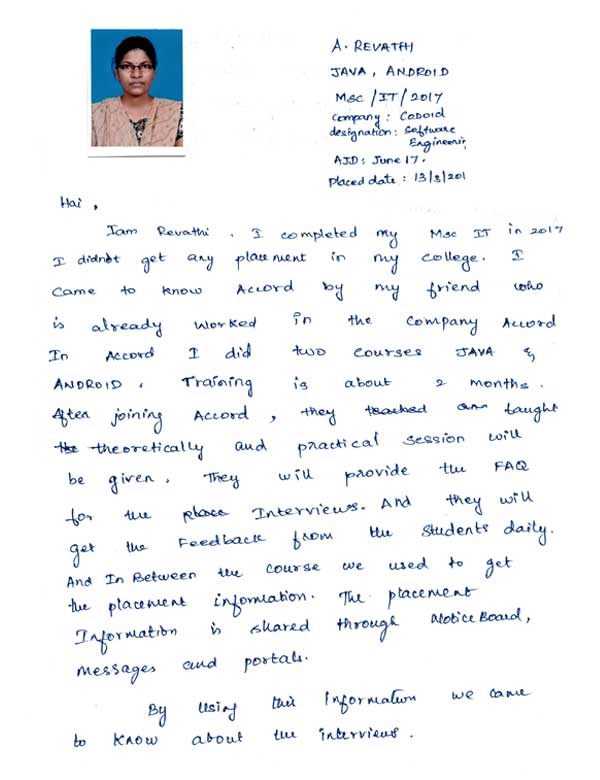 A. REVATHI
JAVA, ANDROID
MSC / IT / 2017
Company : CODOID
designation : Software
Engineer,
AJD : June 17.
Placed date : 13/8/201
Hai ,
Iam Revathi . I completed my MSC IT in 2017
I didnot get any placement in my college. I
came to know Accord by my friend who
is already worked in the company Accord
In Accord I did two courses JAVA &
ANDROID . Training is about 2 months .
After joining Accord , they taught
theoretically and practical session will
be given . They will provide the FAQ
for the Interviews. And they will
get the Feedback from the students daily.
And In Between the course we used to get
the placement information. The placement
Information is shared through Notice Board,
messages and portals.
By using this information we came
to know about the interviews .